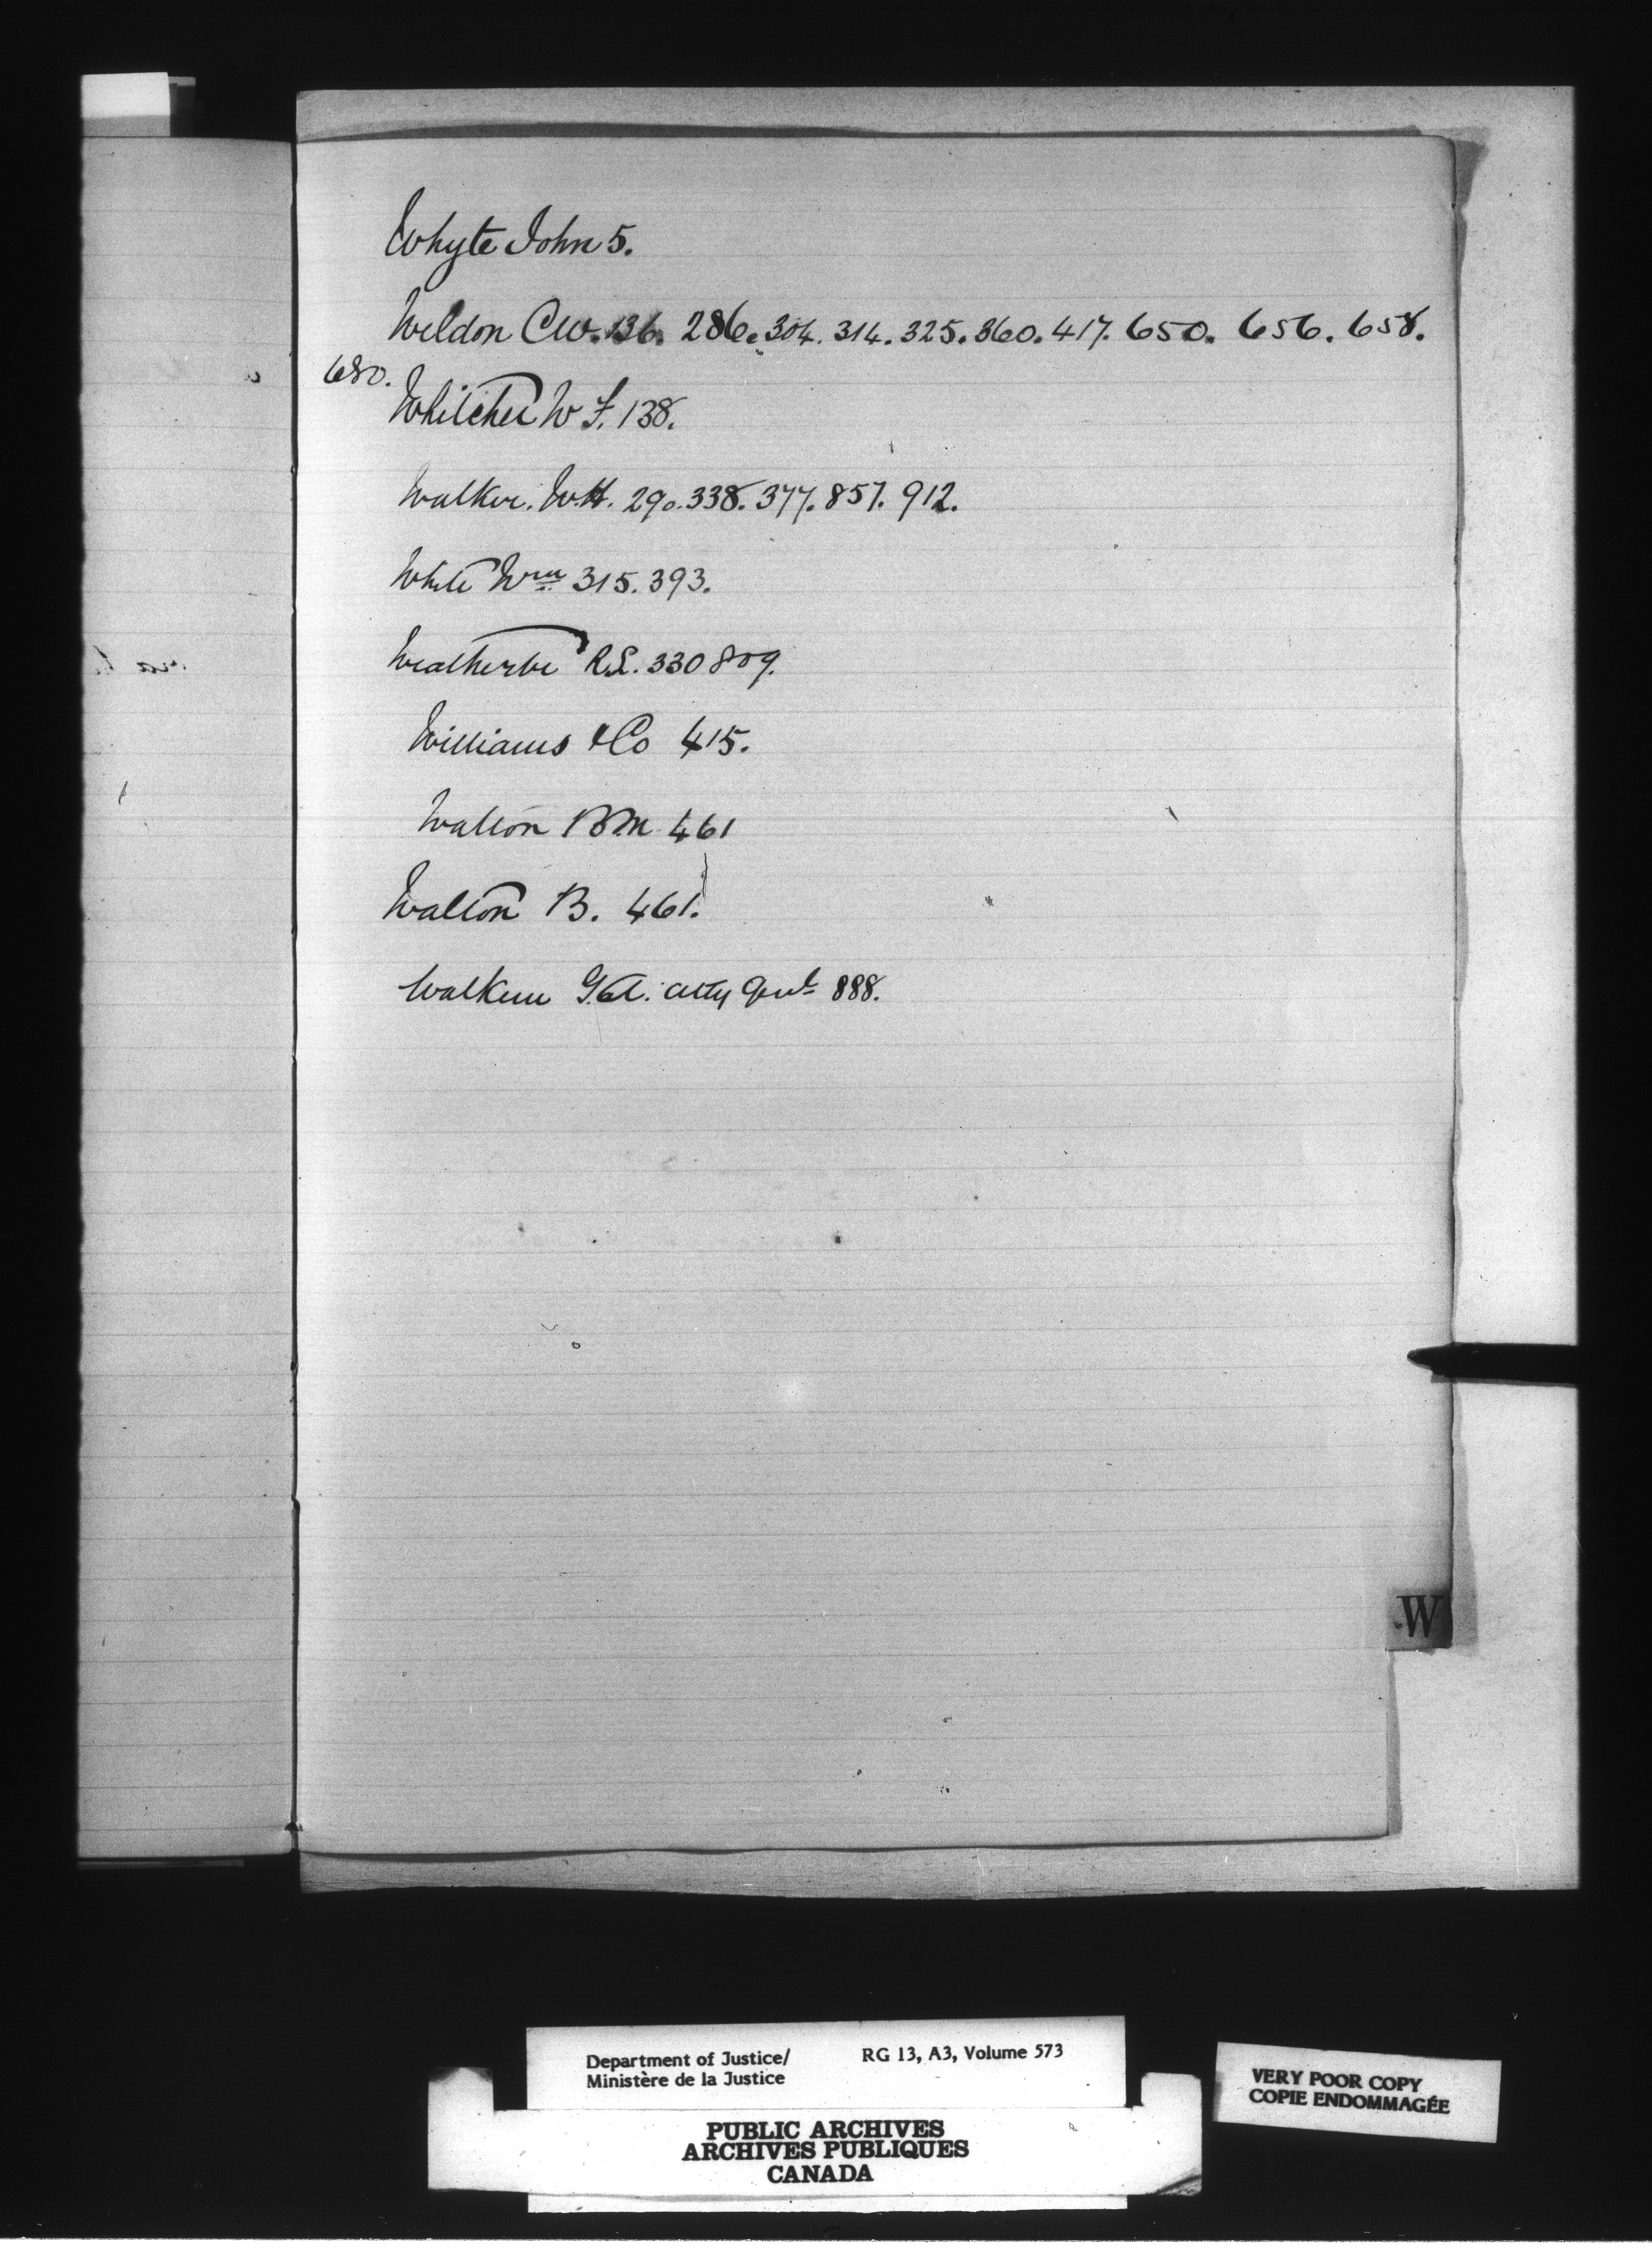 Whyte John 5.
Weldon C.W. 136. 286. 304. 314. 325. 360. 417. 650. 656. 658.
680.
Whitcher W F. 138.
Walker. W.H. 290. 338. 377. 857. 912.
White Wm 315. 393.
Weatherbe R.L. 330 809.
Williams & Co 415.
Walton B M 461
Walton B. 461.
Walkem G.A. Atty Genl 888.
W
Department of Justice/ RG 13, A3, Volume 573
Ministère de la Justice
PUBLIC ARCHIVES
ARCHIVES PUBLIQUES
CANADA
VERY POOR COPY
COPIE ENDOMMAGÉE